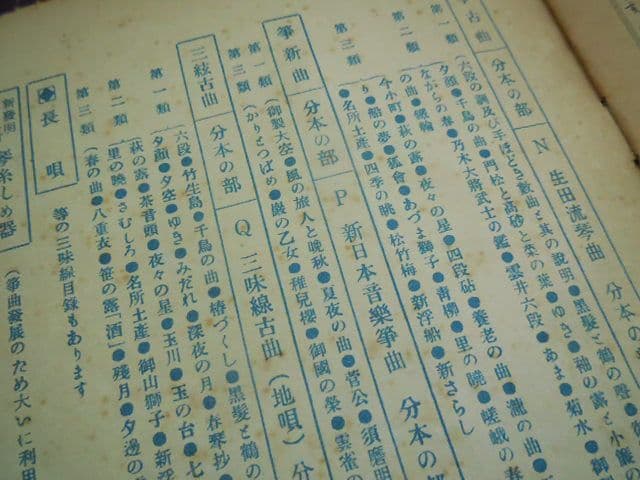 箏古曲
分本の部
N 生田流琴曲
分本の
第一類
六段の調及び手ほどき數曲と其の說明●黑髮と鶴の聲●
夕顏●千鳥の曲●門松と高砂と菜の葉●ゆき●袖の露と小簾の
ながらの春●乃木大將武士の鑑●雲井六段●あま●菊水●御
第二類
の曲●磯千鳥
今小町●萩の露●夜々の星●四段砧●養老の曲●瀧の曲
り●船の夢●狐會●あづま獅子●靑柳●里の曉●嵯峨の春
第三類
●名所土産●四季の眺●松竹梅●新浮船●新さらし
箏新曲
分本の部
P 新日本音樂箏曲
分本の部
第一類
御製大空●風の旅人と晩秋●夏夜の曲●菅公●須磨明
第三類
かりとつばめ●嚴の乙女●稚兒櫻●御國の榮●雲雀の
三絃古曲
分本の部
Q 三味線古曲(地唄)
分
第一類
六段●竹生島●千鳥の曲●椿づくし●黑髮と鶴の
夕顏●夕空●ゆき●みだれ●深夜の月●春琴抄
第二類
萩の露●茶音頭●夜々の星●玉川●玉の台●七
●里の曉●さむしろ●名所土産●御山獅子●新浮
第三類
●春の曲●八重衣●笹の露「酒」●殘月●夕邊の
長唄
等の三味線目錄もあります
新發明
琴糸しめ器
(箏曲發展のため大いに利用